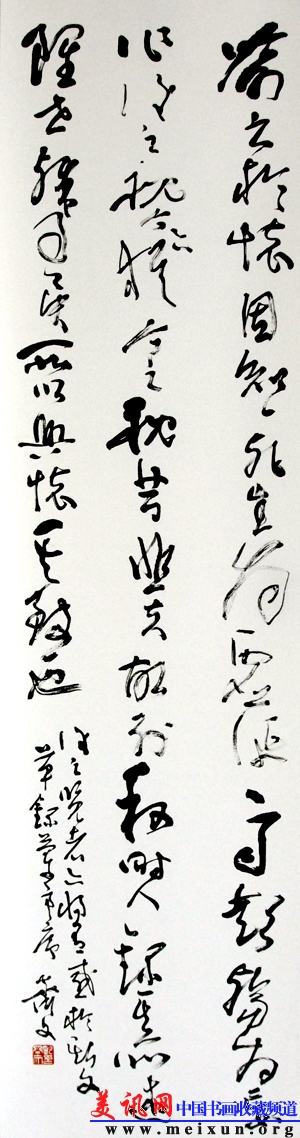 喻之於懷固知一死生為虛誕齊彭殤為妄
作後之視今亦猶今之視昔悲夫故列敘時人錄其所述
雖世殊事異所以興懷其致也
後之覽者亦將有感於斯文
草錄蘭亭序
美讯网 中国书画收藏频道
www.meixun.org